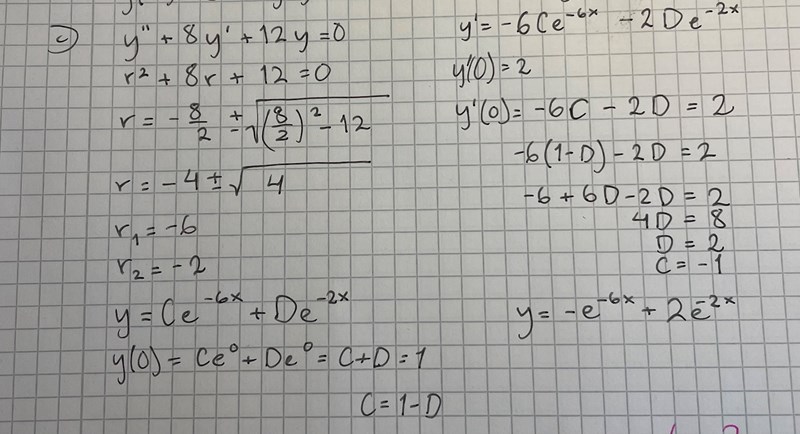 c) y'' + 8y' + 12y = 0
r² + 8r + 12 = 0
r = -8/2 ± √((8/2)² - 12)
r = -4 ± √4
r₁ = -6
r₂ = -2
y = Ce^(-6x) + De^(-2x)
y(0) = Ce⁰ + De⁰ = C+D = 1
C = 1-D
y' = -6Ce^(-6x) - 2De^(-2x)
y'(0) = 2
y'(0) = -6C - 2D = 2
-6(1-D) - 2D = 2
-6 + 6D - 2D = 2
4D = 8
D = 2
C = -1
y = -e^(-6x) + 2e^(-2x)